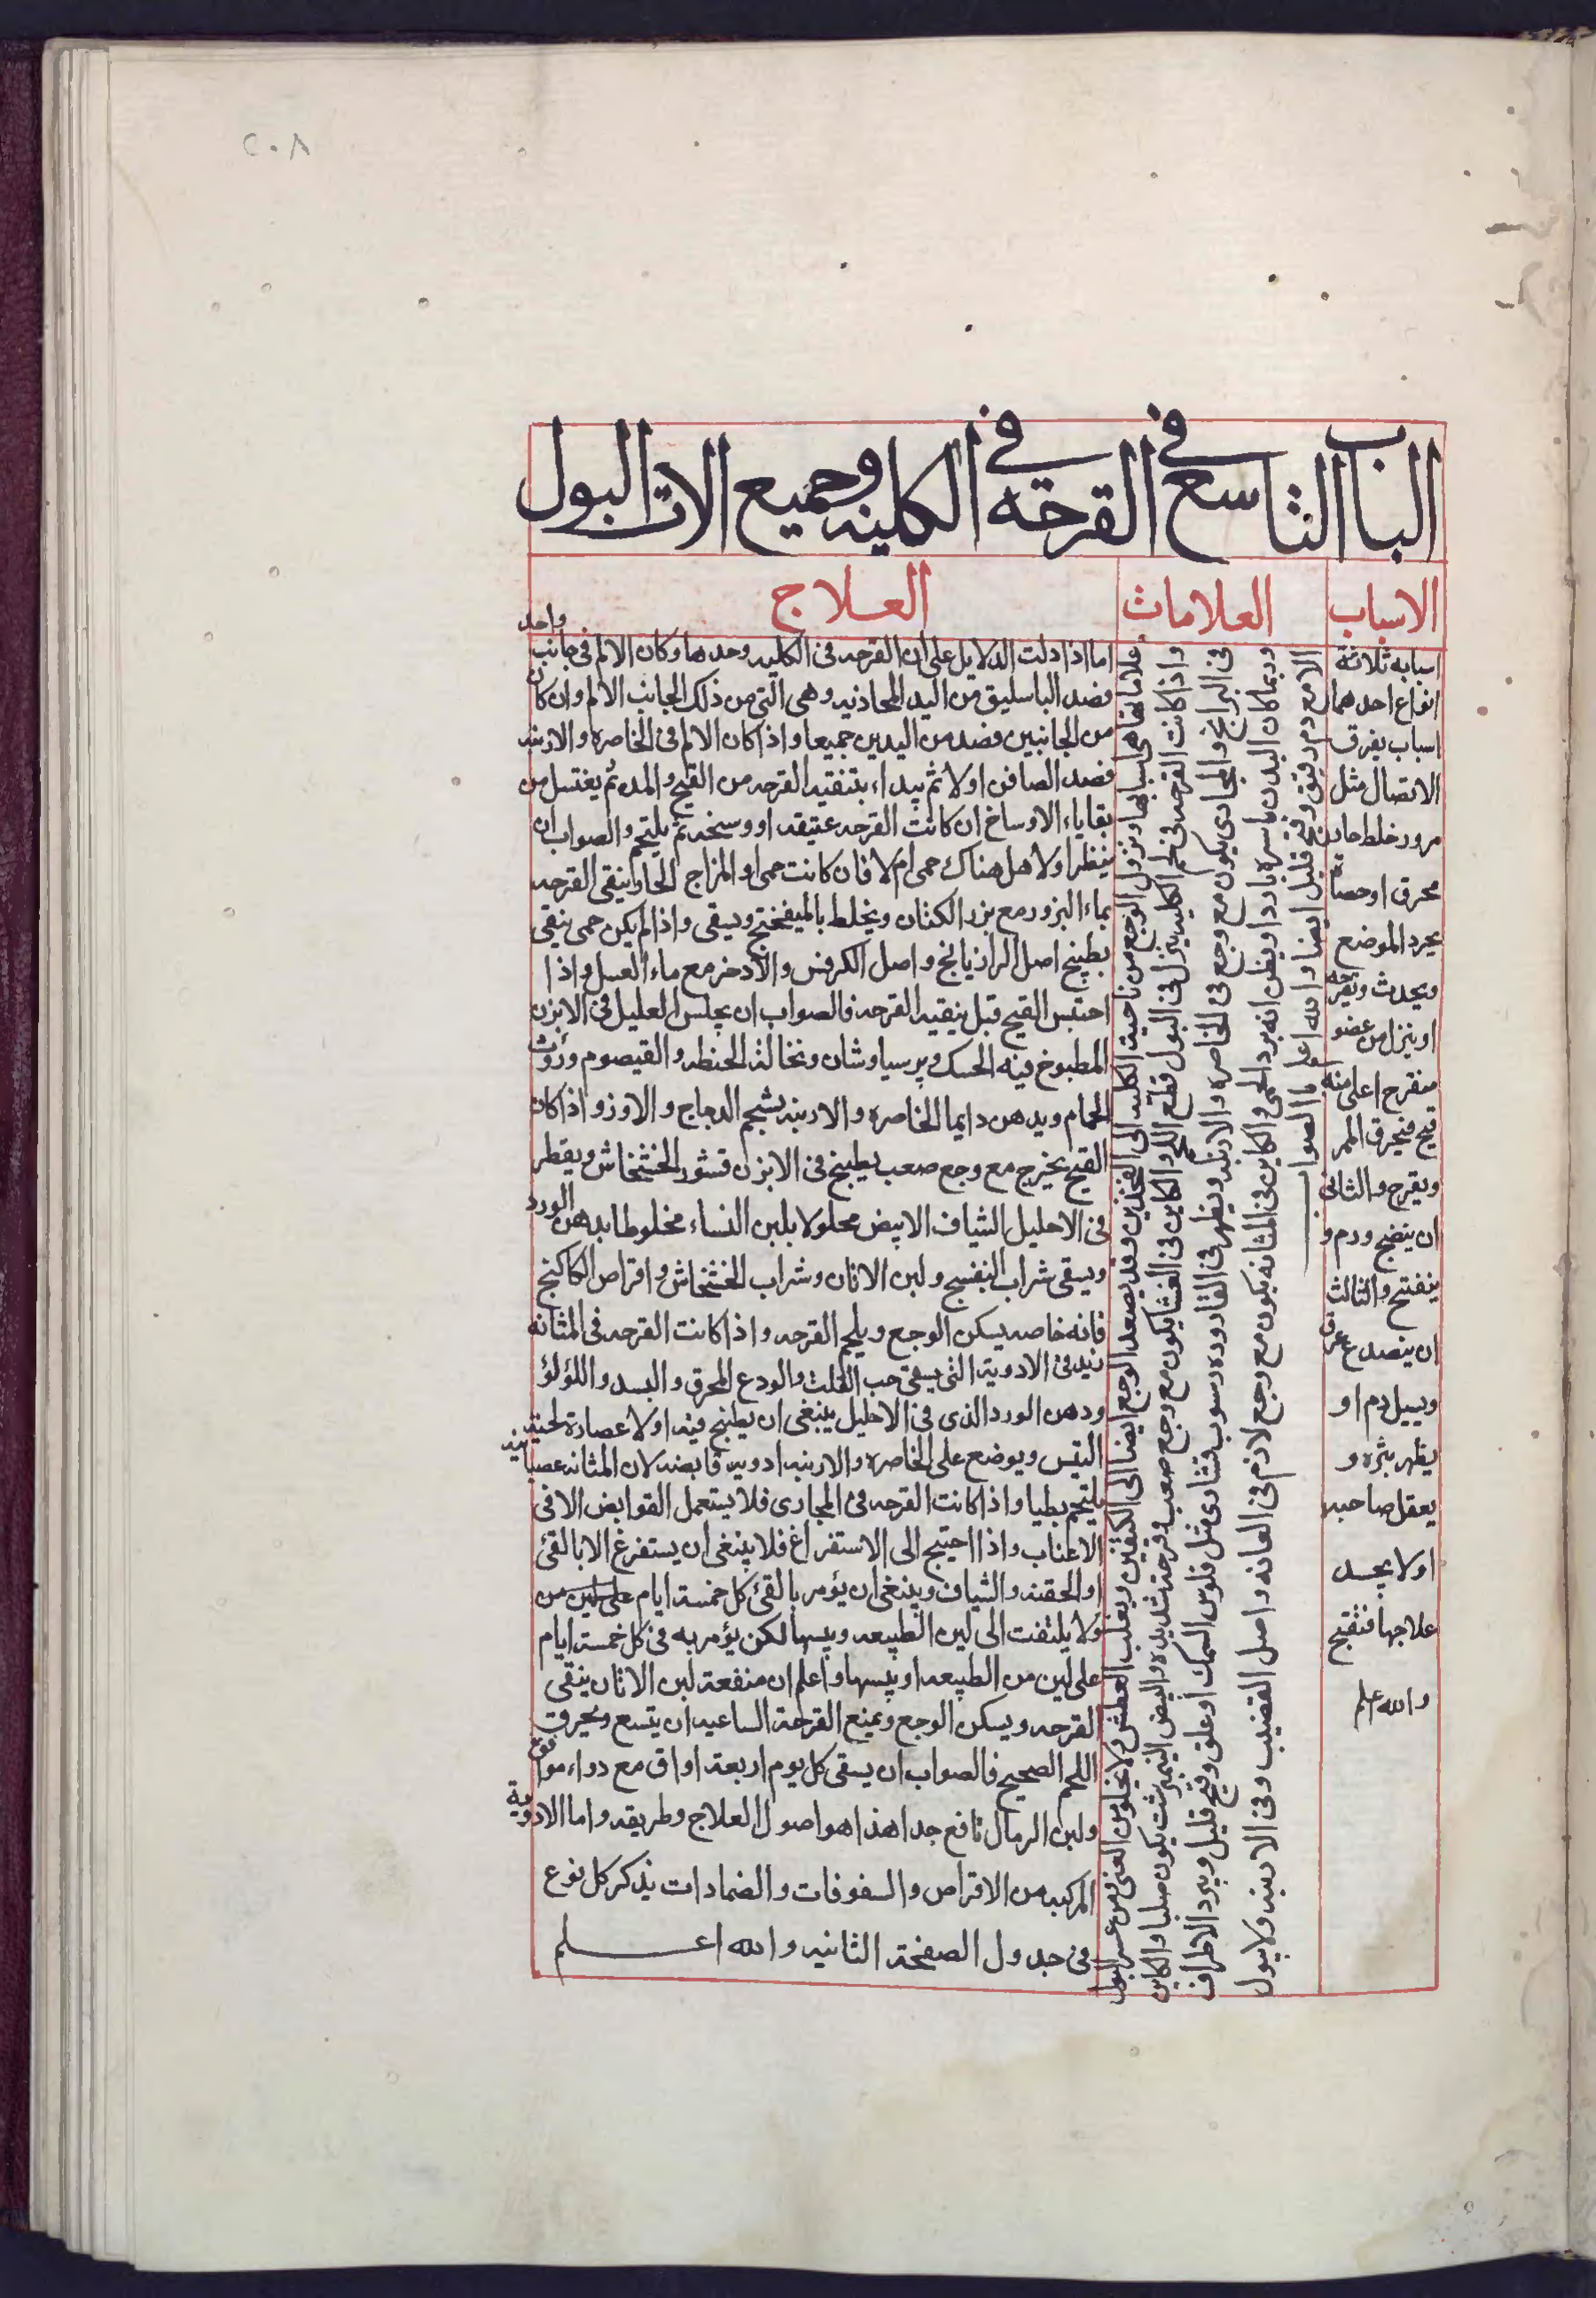 ٢٠٨
الباب التاسع في القرحة في الكلية وجميع الات البول
الاسباب
العلامات
العلاج
اسبابه ثلاثة
انواع احدهما
اسباب يفرق
الاتصال مثل
مرور خلط حاد
محرق او حصاة
يجرد الموضع
ويحدث وتقرحه
او ينزل من عضو
متقرح اعلى منه
قيح فيحرق الممر
ويقرح والثاني
ان ينضج ورم و
ينفتح والثالث
ان ينصدع عرق
ويبيل دم او
يظهر بثره و
يغفل صاحبه
او لا يجد
علاجها فتقيح
والله اعلم
علاماتها هي اسبابها ونزول الوجع من ناحية الكليه الى الفخذين وقد يصعد الوجع ايضا الى الكتفين ويغلب العطش ولا يخلو من الغثي ومن عسر البول
واذا كانت القرحه في لحم الكليه ينزل في البول قطع اللحم والكاين في الغشا يكون مع وجع صعب وقرحة شديده والنبض النمير يكون صلبا والكاين
في البرابخ والمجاري يكون مع وجع في الخاصره والاربيه ويظهر في القاروره رسوب نشاري مثل فلوس السمك او علق وقيح قليل ويبرد الاطراف
وربما كان البدن باسره باردا ويظن انه برد الحمى والكاين في المثانه يكون مع وجع لازم في العانه واصل القضيب وفي الاربيه ولا يبول
الا مع دم رقيق وقيح قليل ايضا والله اعلم بالصواب
اما اذا دلت الدلايل على ان القرحه في الكليه وحدها وكان الالم في جانب واحد
فصد الباسليق من اليد المحاذيه وهي التي من ذلك الجانب الالم وان كان
من الجانبين فصد من اليدين جميعا واذا كان الالم في الخاصره والاربيه
فصد الصافن اولا ثم يبداء بتنقيه القرحه من القيح والمده ثم يغتسل من
بقاياء الاوساخ ان كانت القرحه عتيقه او وسخه ثم يلتحم والصواب ان
ينظر اولا هل هناك حمى ام لا فان كانت حمى او المزاج الحار ينقى القرحه
بماء البزور مع بزر الكتان ويخلط بالميفختج ويسقى واذا لم يكن حمى ينقى
بطبيخ اصل الرازيانج واصل الكرفس والادخر مع ماء العسل واذا
احتبس القيح قبل ينقيه القرحه فالصواب ان يجلس العليل في الابزن
المطبوخ فيه الحسك وبرسياوشان ونخالة الحنطه والقيصوم وزروث
الحمام ويدهن دايما الخاصره والاربيه بشحم الدجاج والاوز واذا كان
القيح يخرج مع وجع صعب يطبخ في الابزن قشور الخشخاش ويقطر
في الاحليل الشياف الابيض محلولا بلبن النساء مخلوطا بدهن الورد
ويسقى شراب البنفسج ولبن الاتان وشراب الخشخاش واقراص الكاكنج
فانه خاصه يسكن الوجع ويلحم القرحه واذا كانت القرحه في المثانه
زيد في الادوية التي يسقى حب القلت والودع المحرق والبسد واللؤلؤ
ودهن الورد الذي في الاحليل ينبغي ان يطبخ فيه اولا عصارة لحية
التيس ويوضع على الخاصره والاربيه ادويه قابضه لان المثانه عصبانيه
يلتحم بطيا واذا كانت القرحه في المجاري فلا يستعمل القوابض الا في
الاعتاب واذا احتيج الى الاستفراغ فلا ينبغي ان يستفرغ الا بالقئ
او الحقنه والشياف وينبغي ان يؤمر بالقئ كل خمسة ايام على لين من
ولا يلتفت الى لين الطبيعه ويبسها لكن يؤمر به في كل خمسة ايام
على لين من الطبيعه او يبسها واعلم ان منفعة لبن الاتان ينقي
القرحه ويسكن الوجع ويمنع القرحة الساعيه ان يتسع ويحرق
اللحم الصحيح فالصواب ان يسقى كل يوم اربعة اواق مع دواء موافق
ولبن الرماك نافع جدا هذا هو اصول العلاج وطريقه واما الادوية
المركبه من الاقراص والسفوفات والضمادات يذكر كل نوع
في جدول الصفحة الثانيه والله اعلم